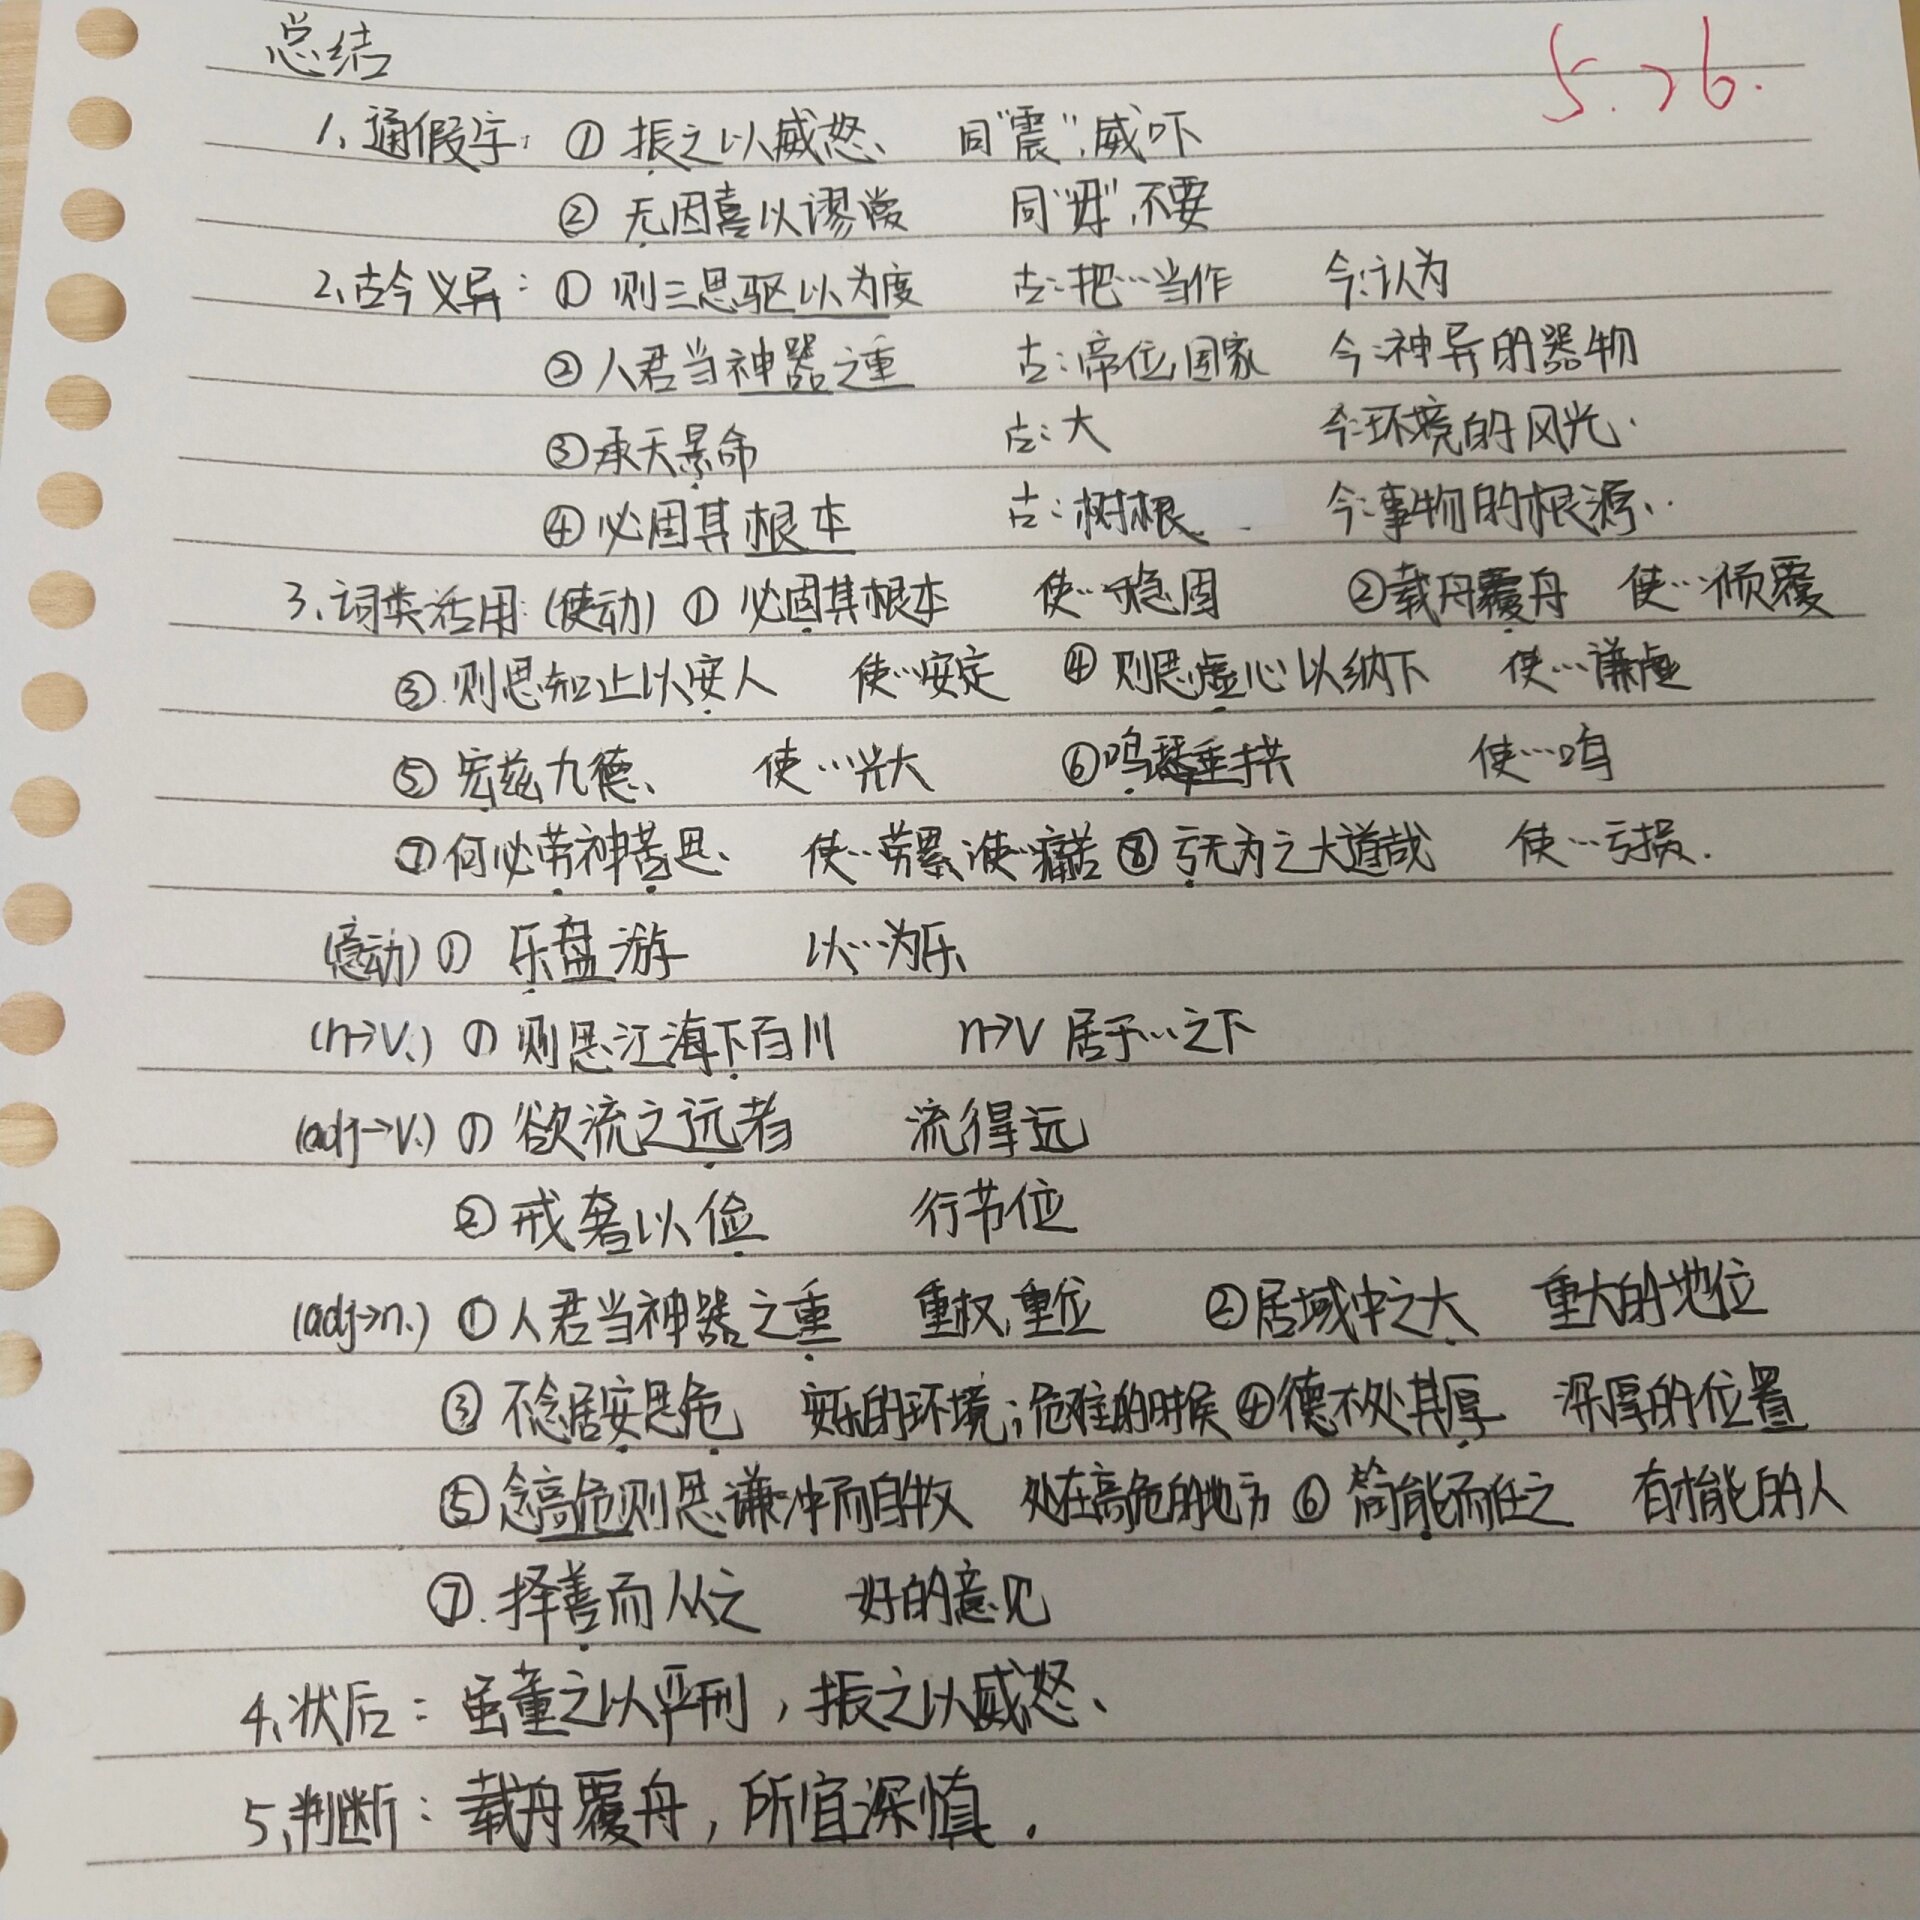 总结
5.26.
1、通假字: ① 振之以威怒、 同"震",威吓
② 无因喜以谬赏 同"毋",不要
2、古今义异: ① 则三思驱以为度 古:把…当作 今:认为
② 人君当神器之重 古:帝位,国家 今:神异的器物
③ 承天景命 古:大 今:环境的风光.
④ 必固其根本 古:树根. 今:事物的根源、
3、词类活用:(使动) ① 必固其根本 使…稳固 ②载舟覆舟 使…倾覆
③.则思知止以安人 使…安定 ④ 则思虚心以纳下 使…谦虚
⑤ 宏兹九德、 使…光大 ⑥鸣琴垂拱 使…鸣
⑦何必劳神苦思、 使…劳累;使…痛苦 ⑧ 亏无为之大道哉 使…亏损.
(意动) ① 乐盘游 以…为乐
(n→v.) ① 则思江海下百川 n→v 居于…之下
(adj→v.) ① 欲流之远者 流得远
② 戒奢以俭 行节位
(adj→n.) ① 人君当神器之重 重权,重位 ②居域中之大 重大的地位
③ 不念居安思危 安乐的环境;危难的时候 ④德不处其厚 深厚的位置
⑤ 念高危则思谦冲而自牧 处在高危的地方 ⑥ 简能而任之 有才能的人
⑦. 择善而从之 好的意见
4、状后: 虽董之以严刑,振之以威怒、
5、判断: 载舟覆舟,所宜深慎.